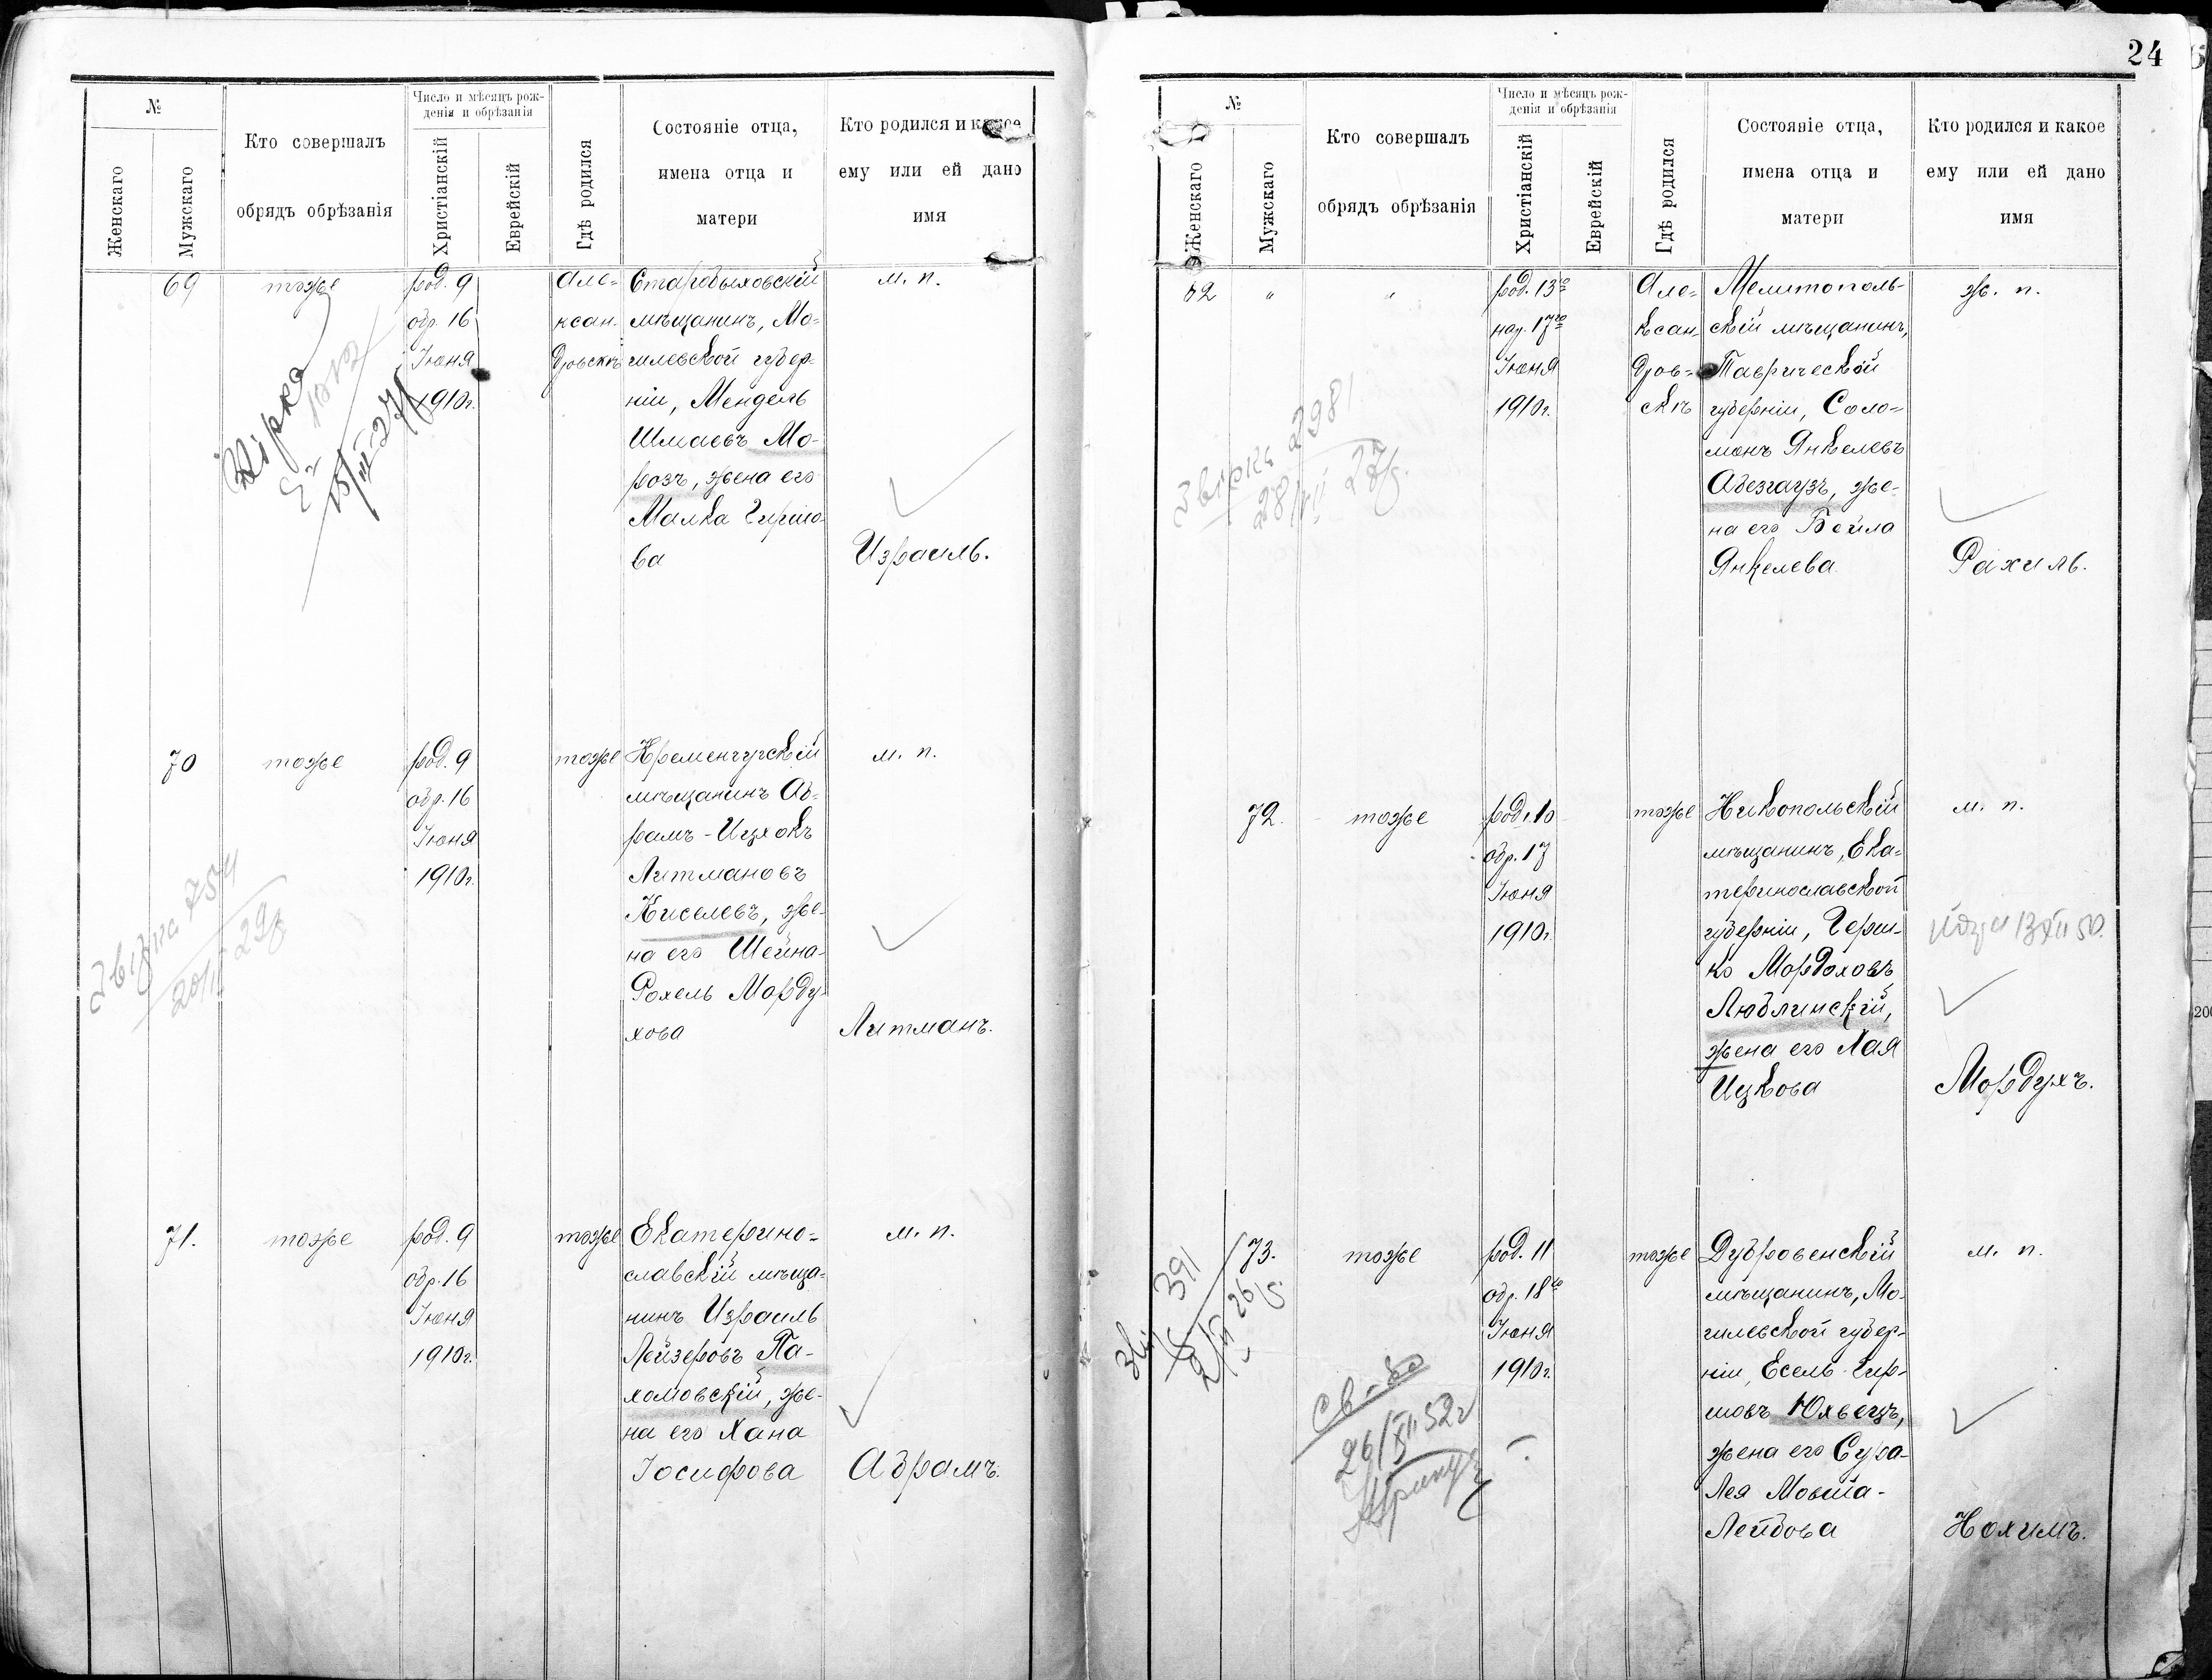 24
№
Женскаго
Мужскаго
Кто совершалъ
обрядъ обрѣзанія
Число и мѣсяцъ рож-
денія и обрѣзанія
Христіанскій
Еврейскій
Гдѣ родился
Состояніе отца,
имена отца и
матери
Кто родился и какое
ему или ей дано
имя
69
тоже
род. 9
обр. 16
Іюня
1910г.
Але-
ксан-
дровскѣ
Старобыховскій
мѣщанинъ, Мо-
гилевской губер-
ніи, Мендель
Шмаевъ Мо-
розъ, жена его
Малка Гиршо-
ва
м. п.
Израиль.
Звірка
15/III-27
70
тоже
род. 9
обр. 16
Іюня
1910г.
тоже
Кременчугскій
мѣщанинъ Аб-
рамъ-Ицхокъ
Литмановъ
Киселевъ, же-
на его Шейна-
Рохель Морду-
хова
м. п.
Литманъ.
Звірка 754
29р
71.
тоже
род. 9
обр. 16
Іюня
1910г.
тоже
Екатерино-
славскій мѣща-
нинъ Израиль
Лейзеровъ Па-
хомовскій, же-
на его Хана
Іосифова
м. п.
Абрамъ.
№
Женскаго
Мужскаго
Кто совершалъ
обрядъ обрѣзанія
Число и мѣсяцъ рож-
денія и обрѣзанія
Христіанскій
Еврейскій
Гдѣ родился
Состояніе отца,
имена отца и
матери
Кто родился и какое
ему или ей дано
имя
62
"
"
род. 13го
нар. 17го
Іюня
1910г.
Але-
ксан-
дров-
скѣ
Мелитополь-
скій мѣщанинъ,
Таврической
губерніи, Соло-
монъ Янкелевъ
Абезгаузъ, же-
на его Бейла
Янкелева
ж. п.
Рахиль.
Звірка 2981
27р.
72.
тоже
род. 10
обр. 17
Іюня
1910г.
тоже
Никопольскій
мѣщанинъ, Ека-
теринославской
губерніи, Герш-
ко Мордоховъ
Люблинскій,
жена его Хая
Ицкова
м. п.
Мордухъ.
73.
тоже
род. 11
обр. 18го
Іюня
1910г.
тоже
Дубровенскій
мѣщанинъ, Мо-
гилевской губер-
ніи, Есель Гир-
шовъ Юхвецъ,
жена его Сура-
Лея Мовша-
Лейбова
м. п.
Нохимъ.
391
св-во
26/XII 52г